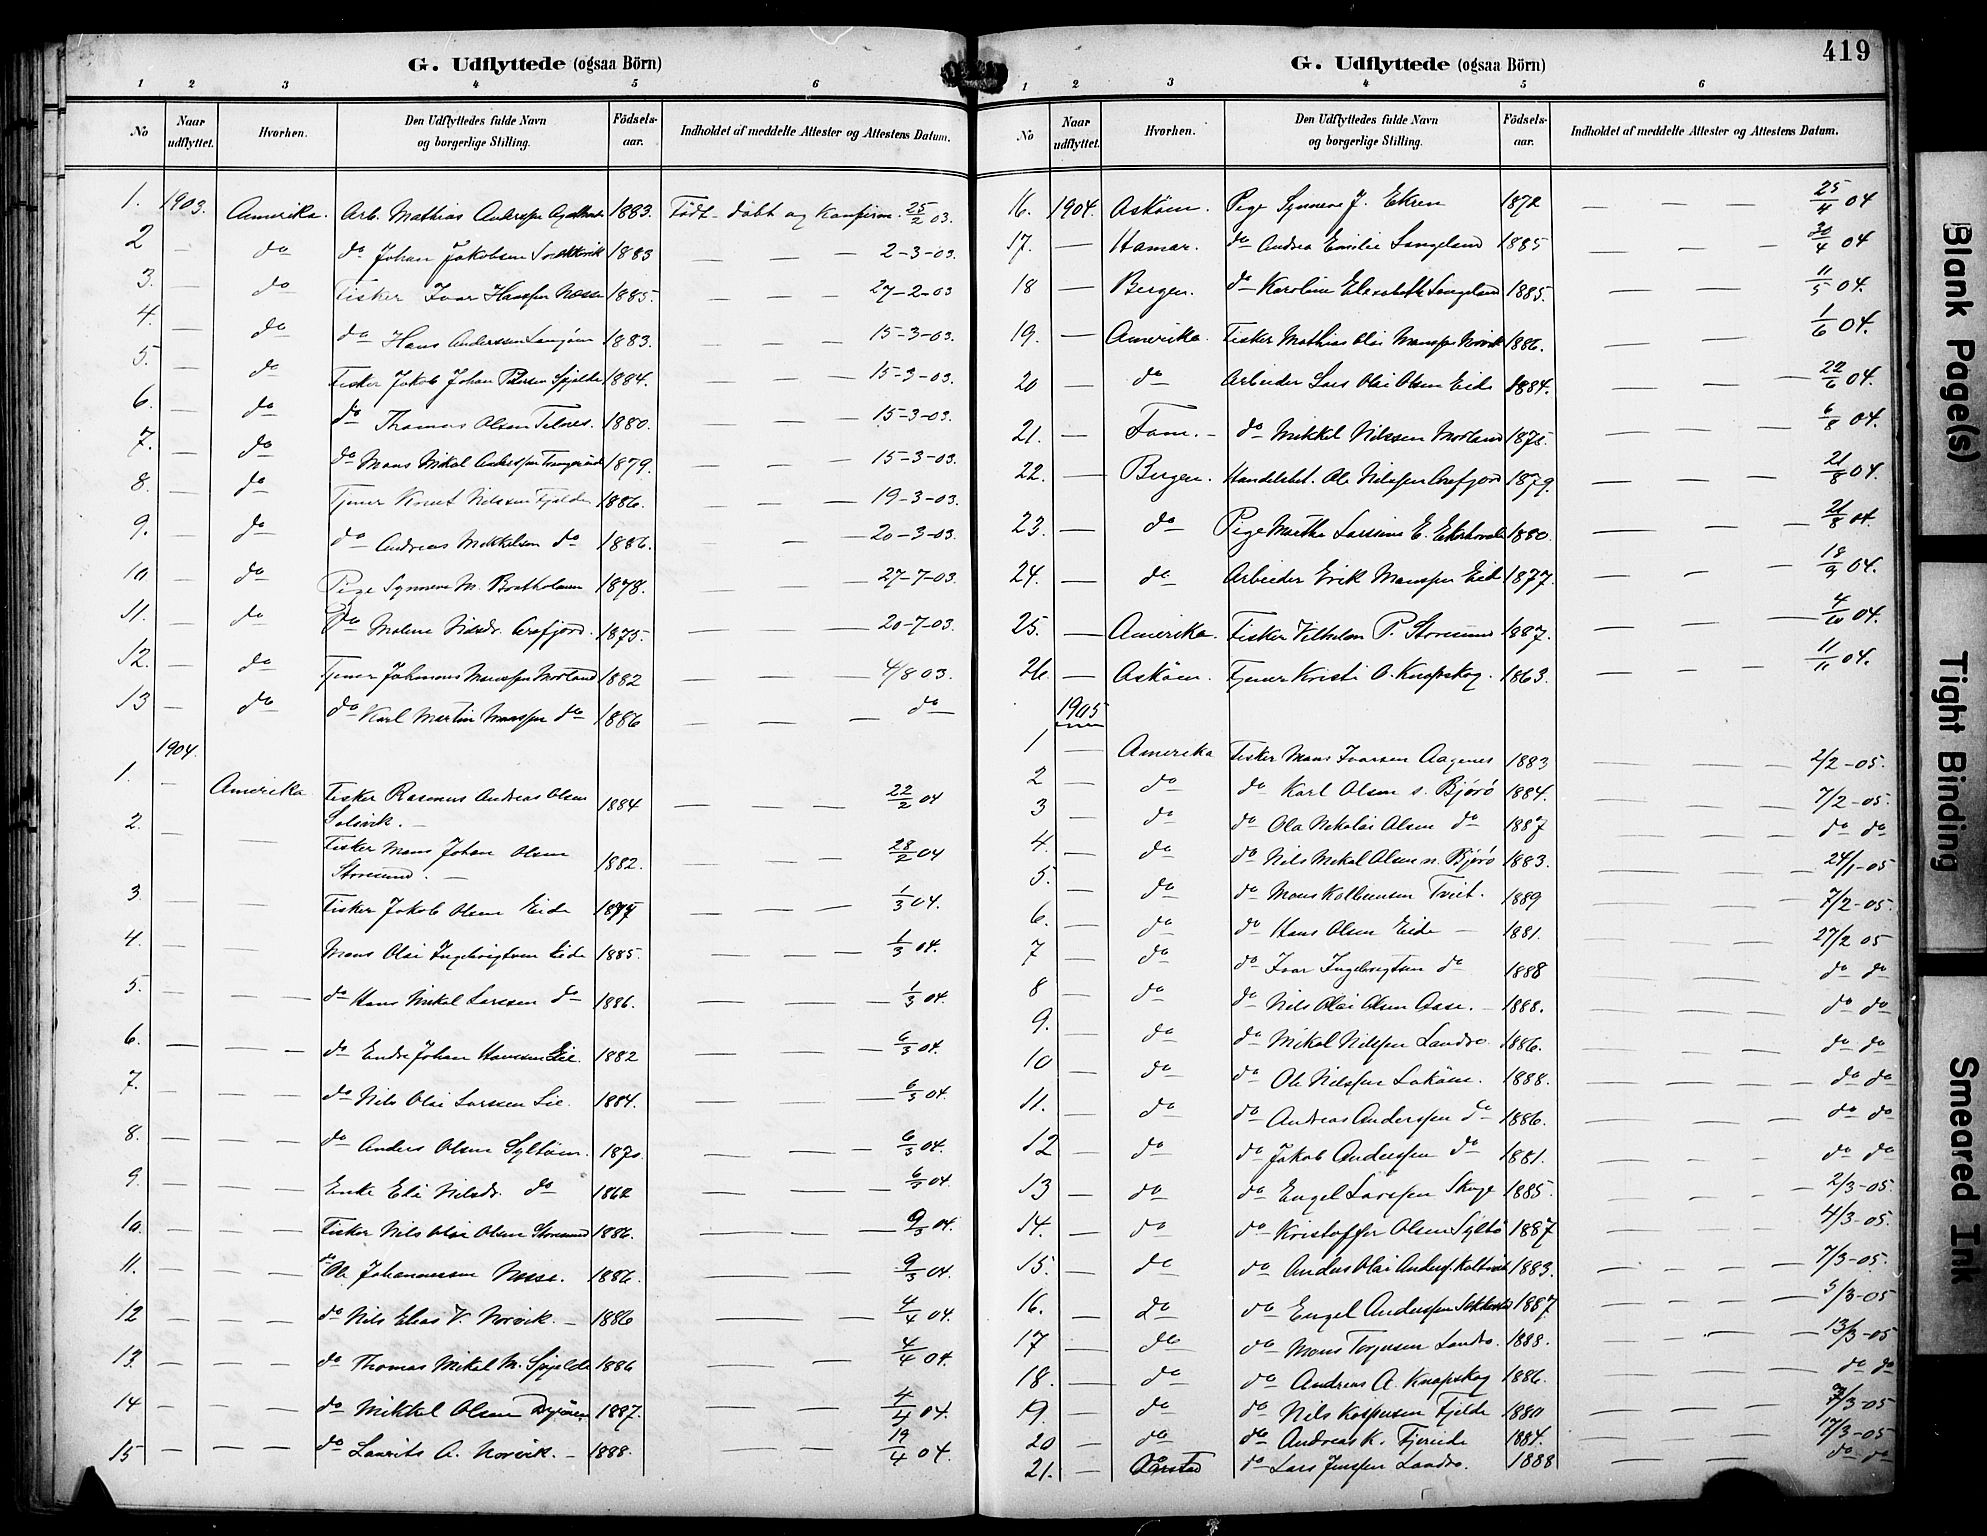 G. Udflyttede (ogsaa Börn)
1 2 3 4 5 6
No Naar udflyttet. Hvorhen. Den Udflyttedes fulde Navn og borgerlige Stilling. Födsels-aar. Indholdet af meddelte Attester og Attestens Datum.
1. 1903. Amerika. Arb. Mathias Anderssen 1883. Födt - döbt og Konfirm. 25/2 03.
2 — do do Johan Jakobsen 1883 — — — 2-3-03.
3. — do Fisker Ivar Hanssen Nesse 1885. — — — 27-2-03
4. — do do Hans Anderssen 1883. — — — 15-3-03.
5. — do Fisker Jakob Johan Petersen Spjelde 1884. — — — 15-3-03.
6. — do do Thomas Olsen Telnes. 1880. — — — 15-3-03.
7. — do do Mons Mikal Anderssen 1879. — — — 15-3-03.
8. — do Tjener Knut Nilssen Fjelde 1886. — — — 19-3-03.
9. — do do Andreas Mikkelsen do 1886. — — — 20-3-03.
10 — do Pige Synneve M. 1878. — — 27-7-03.
11. — do do Malene Nilsdr. Arefjord. 1875. — — — 20-7-03.
12. — do Tjener Johannes Monssen Morland 1882 — — — 4/8 03.
13 — do do Karl Martin Monssen do 1886 — — — do
1904.
1. — Amerika Fisker Rasmus Andreas Olsen 1884 — — — 22/2 04
Solsvik. —
2. — — Fisker Mons Johan Olsen 1882. — — — 28/2 04
Storesund. —
3. — — Fisker Jakob Olsen Eide — — — 1/3 04.
4. — — Mons Olai Ingebrigtsen Eide 1885. — — — 1/3 04.
5. — — — do Hans Mikal Larssen do 1886. — — — 1/3 04.
6. — — — do Endre Johan Hanssen Lie. 1882 — — — 6/3 04.
7. — — — do Nils Olai Larssen Lie. 1884. — — — 6/3 04.
8. — — — do Anders Olsen Syltöen. 1870. — — — 6/3 04.
9. — — — Enke Eli Nilsdr. do 1862 — — — 6/3 04.
10. — — — Fisker Nils Olai Olsen Storesund 1886. — — 9/3 04.
11. — — — do Ole Johannessen Nesse. 1886. — — 9/3 04.
12 — — — do Nils Elias V. Norvik. — 1886 — — 4/4 04.
13. — — — do Thomas Mikal M. Spjelde 1886 — — 4/4 04.
14 — — — do Mikkel Olsen 1887. — — 4/4 04.
15 — — — do Laurits A. Norvik. — 1888. — — — 19/4 04.
419
G. Udflyttede (ogsaa Börn)
1 2 3 4 5 6
No Naar udflyttet. Hvorhen. Den Udflyttedes fulde Navn og borgerlige Stilling. Födsels-aar. Indholdet af meddelte Attester og Attestens Datum.
16. 1904. Asköen. Pige Synneve J. Ekren 1872 — — — 25/4 04
17. — Hamar. do Andrea Emilie Langeland 1885 — — — 30/4 04
18 — Bergen. do Karoline Elisabeth Langeland 1885. — — — 11/5 04.
19. — Amerika. Fisker Mathias Olai Monssen Norvik 1886. — — — 1/6 04.
20 — do Arbeider Lars Olai Olsen Eide 1884. — — — 22/6 04.
21. — Fane. — do Mikkel Nilssen Morland 1875. — — — 6/8 04.
22. — Bergen. Handelsbet. Ole Nilssen Arefjord 1879. — — — 21/8 04.
23. — do Pige Marthe Larssine E. Ekerhovde 1880. — — — 21/8 04.
24. — do Arbeider Erik Monssen Eide 1877. — — — 18/9 04.
25. — Amerika. Fisker Vilhelm P. Storesund 1887. — — — 4/10 04.
26. — Asköen. Tjener Kristi O. Knapskog. 1863. — — — 11/11 04.
1905
1 — Amerika Fisker Mons Ivarsen Aagenes 1883 — — — 2/2-05.
2 — do do Karl Olsen s. Björö 1884. — — — 7/2-05.
3 — do do Ola Nikolai Olsen do 1887 — — — do do
4. — do do Nils Mikal Olsen n. Björö 1883. — — — 24/1-05
5. — do do Mons Kolbensen Tveit. 1889 — — — 7/2-05.
6. — do do Hans Olsen Eide — 1881. — — — 27/2 05
7 — do do Ivar Ingebrigtsen do 1888 — — — do do
8 — do do Nils Olai Olsen Aase. — 1888. — — — do do
9. — do do Mikal Nilssen Landro. 1886. — — — do do
10 — do do Ole Nilssen Loköen. 1888. — — — do do
11. — do do Andreas Anderssen do 1886. — — — do do
12 — do do Jakob Anderssen do 1881. — — — do do
13 — do do Engel Larssen Skoge 1885. — — — 2/3-05.
14. — do do Kristoffer Olsen Syltö 1887 — — — 4/3-05.
15. — do do Anders Olai Anderss. Kolltveit 1883. — — — 7/3-05.
16. — do do Engel Anderssen 1887. — — — 5/3-05
17 — do do Mons Torgersen Landro. 1888. — — — 13/3-05
18. — do do Andreas A. Knapskog 1886. — — — do do
19. — do do Nils Kaspersen Fjelde 1880 — — — 7/3-05
20 — do do Andreas K. 1884. — — — 17/3-05
21. — Aarstad do Lars Jenssen Landro. 1888 — — — do do
Blank Page(s)
Tight Binding
Smeared Ink